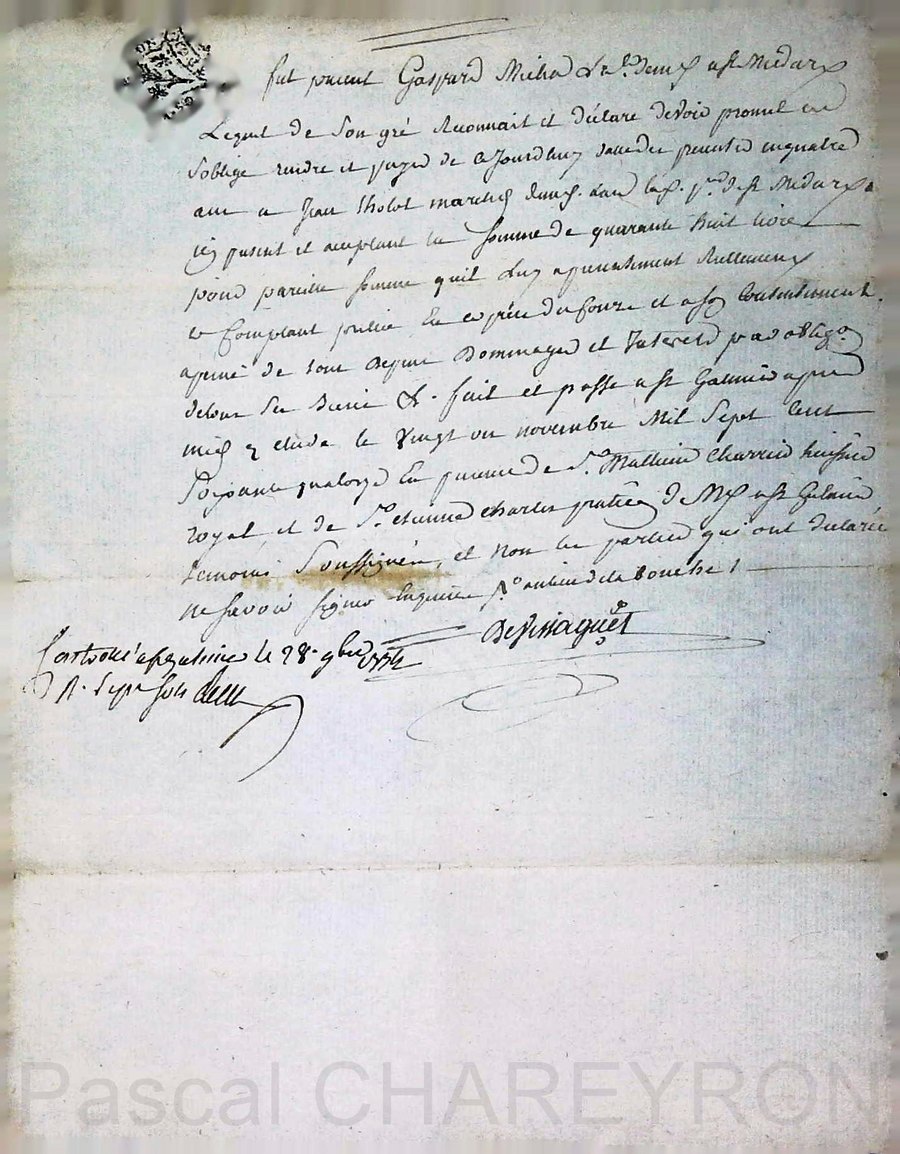 fut present Gaspard Michad demt a st Medard
Lequel de Son gré Reconnait et déclare devoir promet et
soblige rendre et payer de ce Jourdhuy en quatre
ans a Jean Tholot marchd de st Medard
icy present et aceptant la Somme de quarante huit livre
pour pareille somme quil luy a presentement Reellement
Comptant en espèce du Cours et a son Contentement
a peine de tous Depens Dommages et Interets par obligaon
de tous ses Biens &. fait et passé a st Galmier apres
midy etude le Vingt un novembre Mil Sept Cent
Soixante quatorze En presence de Sr Mathieu Charrein huissier
royal et de Sr etienne Charles praticien de st Galmier
temoins Soussignés, et non les parties qui ont declarée
ne savoir signer enquise
DeVissaguet
Controllé a st galmier le 28. 9bre 1774
R. Sept sols
Pascal CHAREYRON